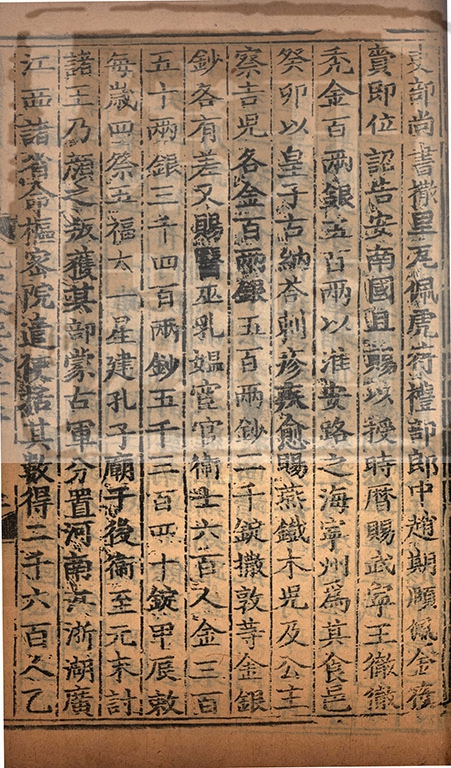 吏部尚書撒里瓦佩虎符禮部郎中趙期順佩金符
賫即位詔告安南國且賜以授時曆賜武寧王徹徹
禿金百兩銀五百兩以淮安路之海寧州爲其食邑
癸卯以皇子古納荅剌疹疾愈賜燕鐵木兒及公主
察吉兒各金百兩銀五百兩鈔二千錠撒敦等金銀
鈔各有差又賜醫巫乳媼宦官衛士六百人金三百
五十兩銀三千四百兩鈔五千三百四十錠甲辰敕
每歲四祭五福太一星建孔子廟于後衛至元末討
諸王乃顔之叛獲其部蒙古軍分置河南江浙湖廣
江西諸省命樞密院遣使括其數得二千六百人乙